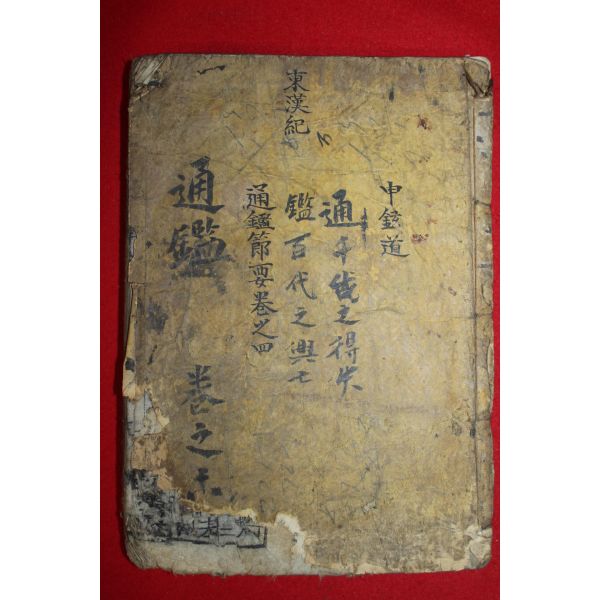 申鉉道
通千代之得失
鑑百代之興亡
東漢紀
通鑑節要卷之四
通鑑 卷之十